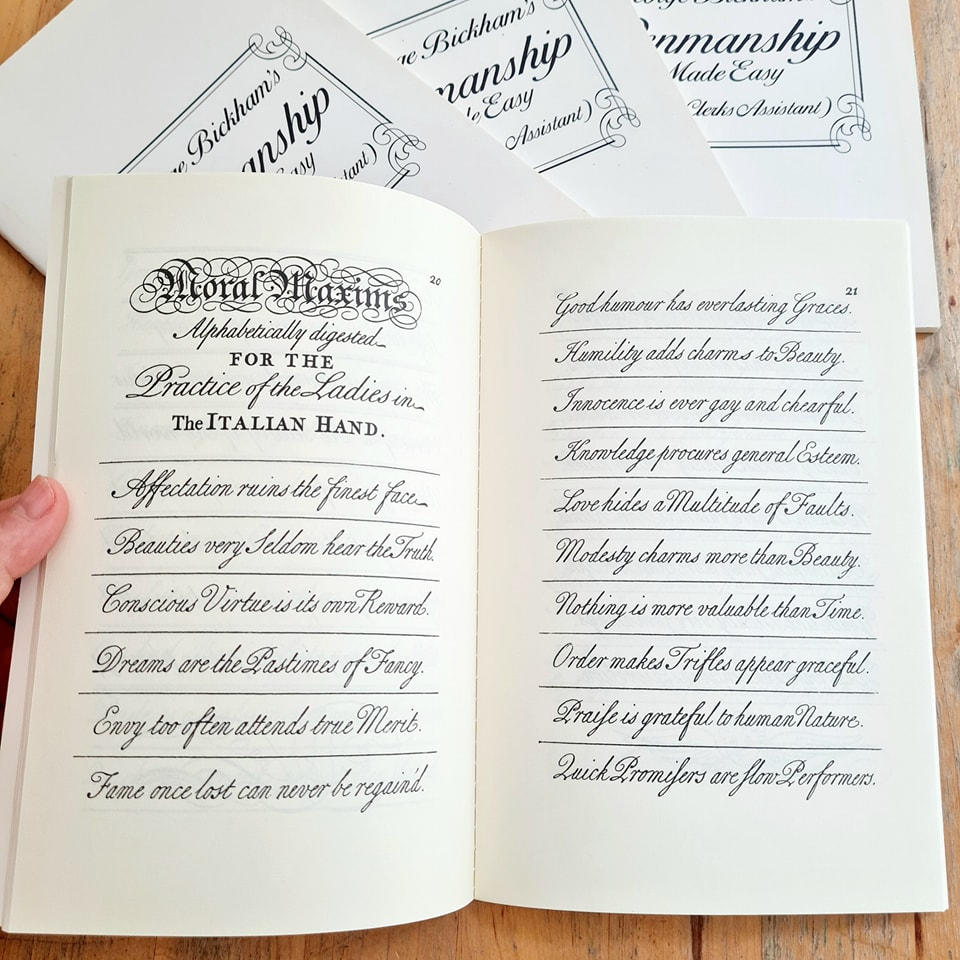 Bickham's
anship
asy
stant)
ge Bickham's
manship
de Easy
Assistant)
Bickham's
enmanship
Made Easy
Clerks Assistant)
20
Moral Maxims
Alphabetically digested
FOR THE
Practice of the Ladies in
The ITALIAN HAND.
Affectation ruins the finest face
Beauties very ſeldom hear the Truth.
Conscious Virtue is its own Reward.
Dreams are the Pastimes of Fancy.
Envy too often attends true Merit.
Fame once lost can never be regain'd.
21
Good humour has everlasting Graces.
Humility adds charms to Beauty.
Innocence is ever gay and chearful.
Knowledge procures general Esteem.
Love hides a Multitude of Faults.
Modesty charms more than Beauty.
Nothing is more valuable than Time.
Order makes Trifles appear graceful.
Praiſe is grateful to human Nature.
Quick Promiſers are ſlow Performers.